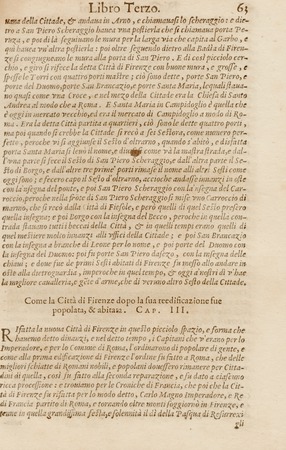 Libro Terzo. 65
uena della Cittade, & andaua in Arno, e chiamauasi lo scheraggio: e die-
tro a San Piero Scheraggio haueua vna postierla che si chiamaua porta Pe-
ruza, e poi di là seguiuano le mura per la larga via che capita al Garbo, e
qui haueua vn'altra postierla: poi oltre seguendo dietro alla Badia di Firen-
ze si congiungeano le mura alla porta di San Piero. E di così picciolo cer-
chio, e giro si rifece la detta Città di Firenze con buone mura, e grosse,
spesse le Torri con quattro porti mastre; ciò sono dette, porte San Piero, e
porte del Duomo, porte San Brancazio, e porte Santa Maria, lequali staua-
no quasi come vna Croce, e nel mezo della Cittade era la Chiesa di Santo
Andrea al modo che a Roma. E Santa Maria in Campidoglio è quella che
è oggi in mercato vecchio, et era il mercato di Campidoglio a modo di Ro-
ma. Era la detta Città partita a quartieri, ciò sono le dette quattro porte,
ma poi quando si crebbe la Cittade si recò a sei Sestora, come numero per-
fetto, perochè vi s'aggiunse il Sesto d'oltrarno, quando s'abitò, e disfatta
porta Santa Maria si leuò il nome, e diuise come và la mastra strada, e dal-
l'vna parte si fece il Sesto di San Piero Scheraggio, e dall'altra parte il Se-
sto di Borgo, e dall'altre tre prime porti rimase il nome all'altre Sesti come
oggi sono; e fecero capo il Sesto d'oltrarno, acciochè andasse innanzi in oste
con la insegna del ponte, e poi San Piero Scheraggio con la insegna del Car-
roccio, perochè nella fronte di San Piero Scheraggio si mise vno Carroccio di mar-
mo, che si recò dalla città di Fiesole, però quelli di quello Sesto la presero
quella insegna; e poi Borgo con la insegna del Becco, perochè in quella con-
trada stanno tutti i beccai della Città, & in quelli tempi erano quelli di
quel mestiere molto innanzi all'vffici della Cittade; e poi San Brancazio
con la insegna a branche di Leone per nome, e poi porte del Duomo con
la insegna del Duomo; poi fu porte San Piero dassezo, con la insegna delle
chiaui; e doue fue de primi Sesti abitati di Firenze fu messo allo andare in
oste alla dietroguardia, imperochè in quel tempo, & oggi a'nostri dì v'hae
la migliore caualleria, e gente d'arme, che di niuno altro Sesto della Cittade.
Come la Città di Firenze dopo la sua reedificazione fue
popolata, & abitata. CAP. III.
Rifatta la nuoua Città di Firenze in quello picciolo spazio, e forma che
hauemo detto dinanzi, e nel detto tempo, i Capitani che v'erano per lo
Imperadore, e per lo Comune di Roma, l'ordinarono di popolare di gente, e
come alla prima edificazione di Firenze l'ordine fu fatto a Roma, che delle
migliori schiatte di Romani nobili, e popolani douessero rimanere per Citta-
dini di quella, così fu fatto alla seconda reparazione, e fu dato a ciascuno
ricca processione: e trouiamo per le Croniche di Francia, che poi che la Cit-
tà di Firenze fu rifatta per lo modo detto, Carlo Magno Imperadore, e Re
di Francia partito di Roma, e tornando oltre monti soggiornò in Firenze, e
tenne in quella grandissima festa, e solennità il dì della Pasqua di Resurrexi
gli